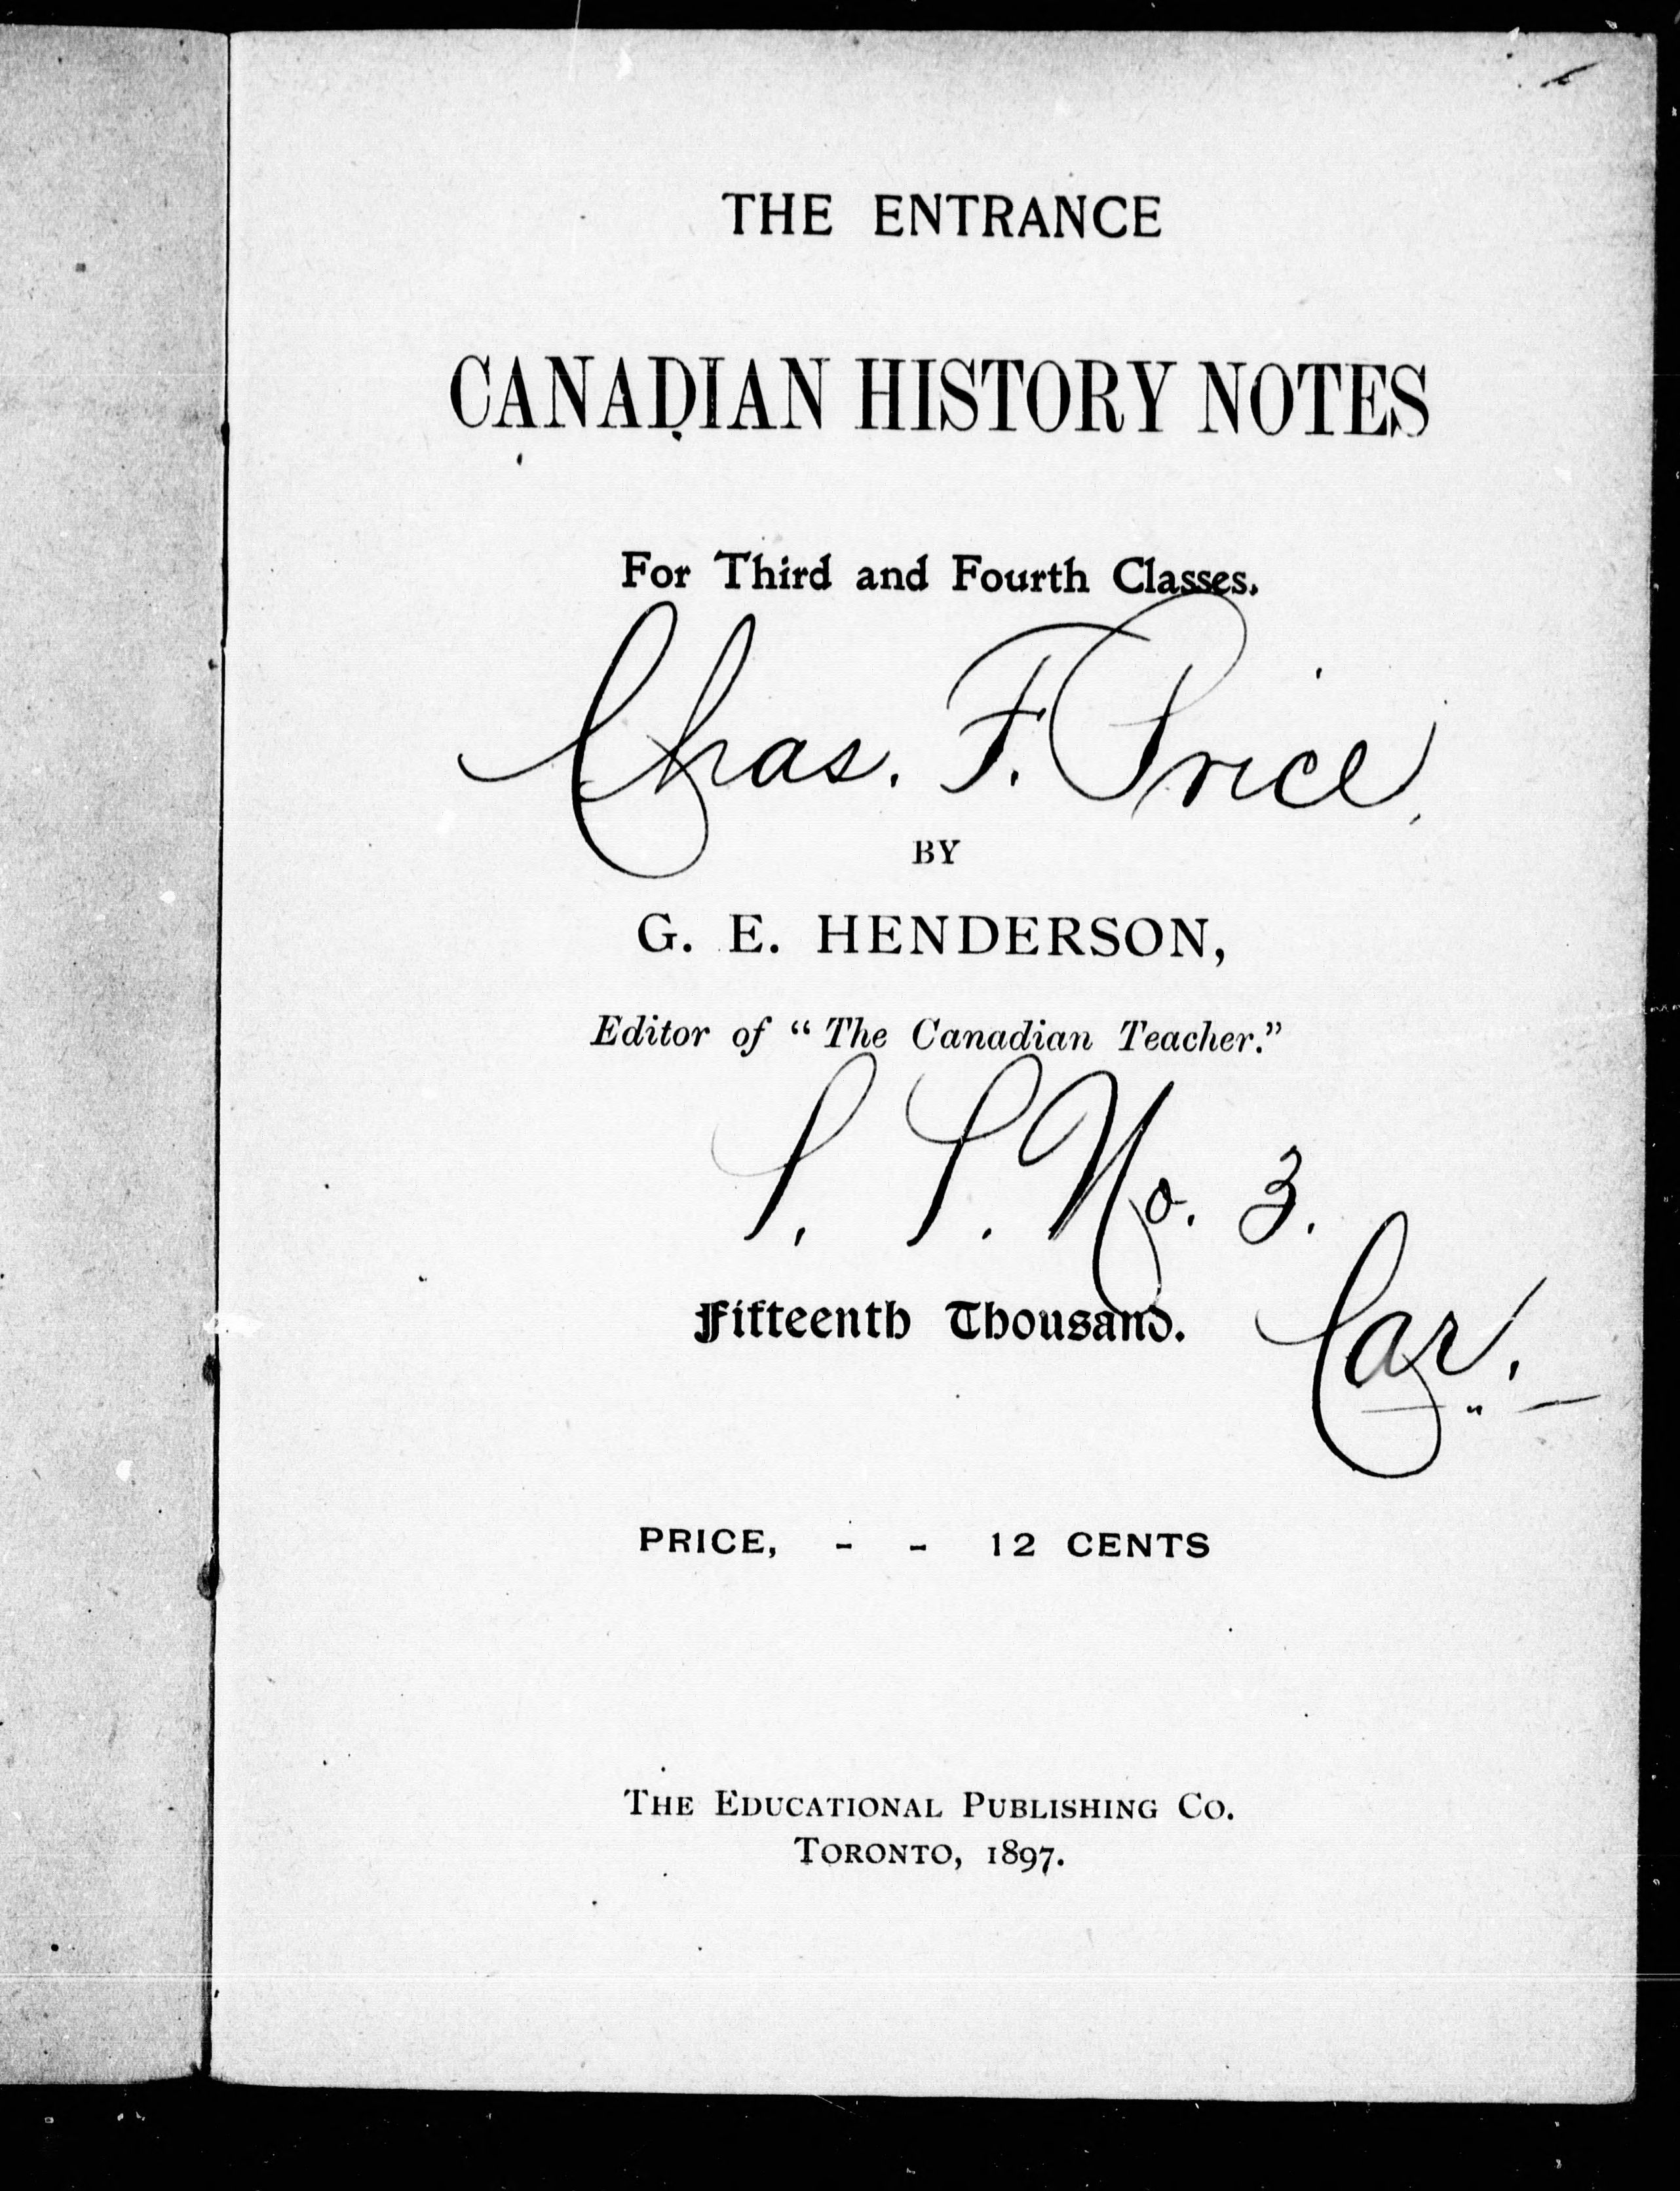 THE ENTRANCE
CANADIAN HISTORY NOTES
For Third and Fourth Classes.
Chas. F. Price,
BY
G. E. HENDERSON,
Editor of "The Canadian Teacher."
S. S. No. 3.
Fifteenth Thousand.
Car.
PRICE, - - 12 CENTS
THE EDUCATIONAL PUBLISHING CO.
TORONTO, 1897.